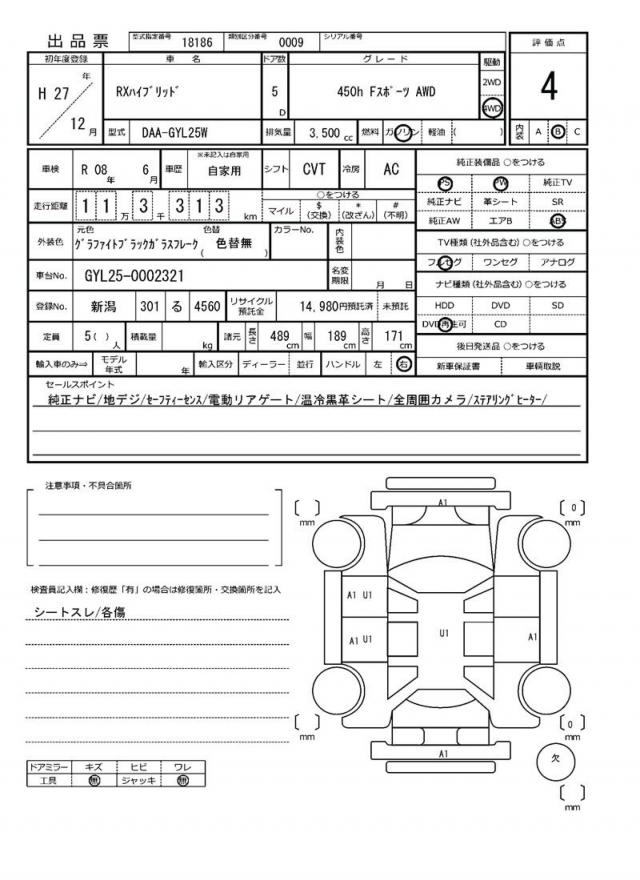 出品票 型式指定番号 18186 類別区分番号 0009 シリアル番号
評価点
4
内装 A B C
初年度登録 車名 ドア数 グレード 駆動
H 27年 12月 RXハイブリッド 5D 450h Fスポーツ AWD 2WD 4WD
型式 DAA-GYL25W 排気量 3,500cc 燃料 ガソリン 軽油 ( )
車検 R 08年 6月 車歴 ※未記入は自家用 自家用 シフト CVT 冷房 AC
走行距離 11万3千313km ○をつける
マイル $(交換) *(改ざん) #(不明)
外装色 元色 グラファイトブラックガラスフレーク 色替 ( 色替無 ) カラーNo. 内装色
車台No. GYL25-0002321 名変期限 月 日
登録No. 新潟 301 る 4560 リサイクル預託金 14,980円預託済 未預託
定員 5( )人 積載量 kg 諸元 長さ 489cm 幅 189cm 高さ 171cm
輸入車のみ⇒ モデル年式 年 輸入区分 ディーラー 並行 ハンドル 左 右
純正装備品 ○をつける
PS PW 純正TV
純正ナビ 革シート SR
純正AW エアB ABS
TV種類(社外品含む) ○をつける
フルセグ ワンセグ アナログ
ナビ種類(社外品含む) ○をつける
HDD DVD SD
DVD再生可 CD
後日発送品 ○をつける
新車保証書 車輌取説
セールスポイント
純正ナビ/地デジ/セーフティーセンス/電動リアゲート/温冷黒革シート/全周囲カメラ/ステアリングヒーター/
注意事項・不具合箇所
検査員記入欄:修復歴「有」の場合は修復箇所・交換箇所を記入
シートスレ/各傷
ドアミラー キズ ヒビ ワレ
工具 無 ジャッキ 無
A1
[ ] mm
[ 0 ] mm
A1 U1
A1 U1
U1
A1
[ ] mm
[ 0 ] mm
A1
欠
[ ] mm